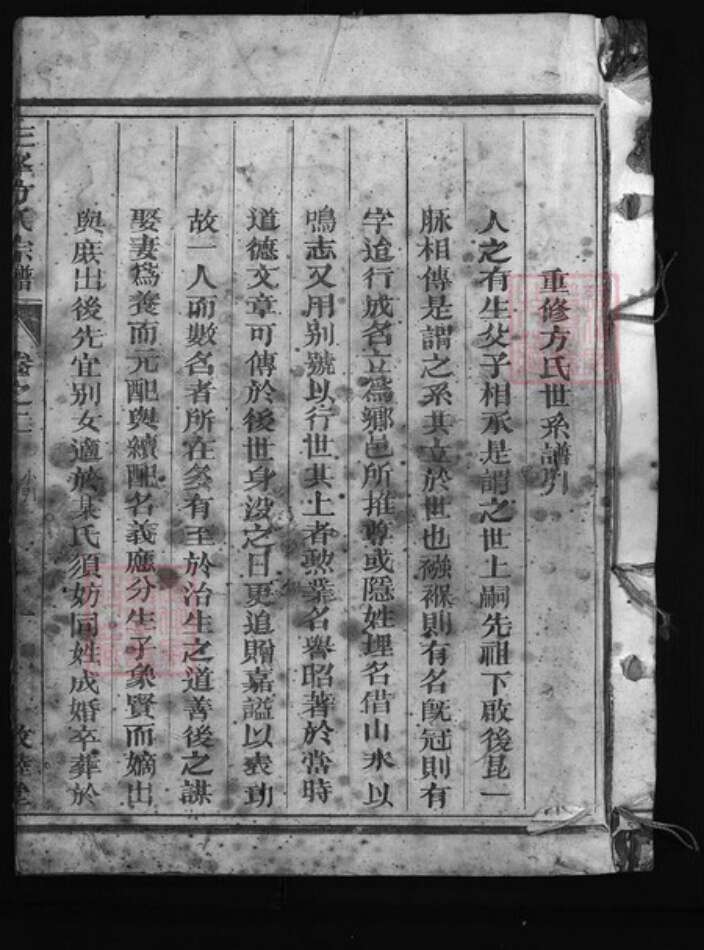 重修方氏世系譜引
人之有生父子相承是謂之世上嗣先祖下啟後昆一
脉相傳是謂之系其立於世也襁褓則有名旣冠則有
字迨行成名立爲鄉邑所推尊或隱姓埋名借山水以
鳴志又用别號以行世其上者勲業名譽昭著於當時
道德文章可傳於後世身没之日更追贈嘉謚以表功
故一人而數名者所在多有至於治生之道善後之謀
娶妻爲養而元配與續配名義應分生子象賢而嫡出
與庶出後先宜别女適於某氏須妨同姓成婚卒葬於
方氏宗譜 卷之二 一